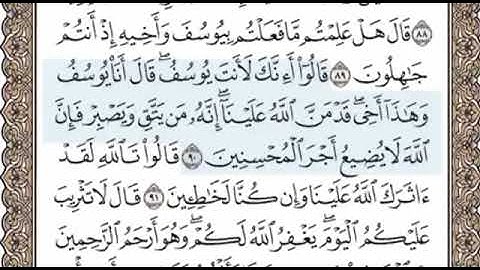 ٨٨ قَالَ هَلْ عَلِمْتُم مَّا فَعَلْتُم بِيُوسُفَ وَأَخِيهِ إِذْ أَنتُمْ
جَٰهِلُونَ ٨٩ قَالُوٓا۟ أَءِنَّكَ لَأَنتَ يُوسُفُ ۖ قَالَ أَنَا۠ يُوسُفُ
وَهَٰذَآ أَخِى ۖ قَدْ مَنَّ ٱللَّهُ عَلَيْنَآ ۖ إِنَّهُۥ مَن يَتَّقِ وَيَصْبِرْ فَإِنَّ
ٱللَّهَ لَا يُضِيعُ أَجْرَ ٱلْمُحْسِنِينَ ٩٠ قَالُوا۟ تَٱللَّهِ لَقَدْ
ءَاثَرَكَ ٱللَّهُ عَلَيْنَا وَإِن كُنَّا لَخَٰطِـِٔينَ ٩١ قَالَ لَا تَثْرِيبَ
عَلَيْكُمُ ٱلْيَوْمَ ۖ يَغْفِرُ ٱللَّهُ لَكُمْ ۖ وَهُوَ أَرْحَمُ ٱلرَّٰحِمِينَ